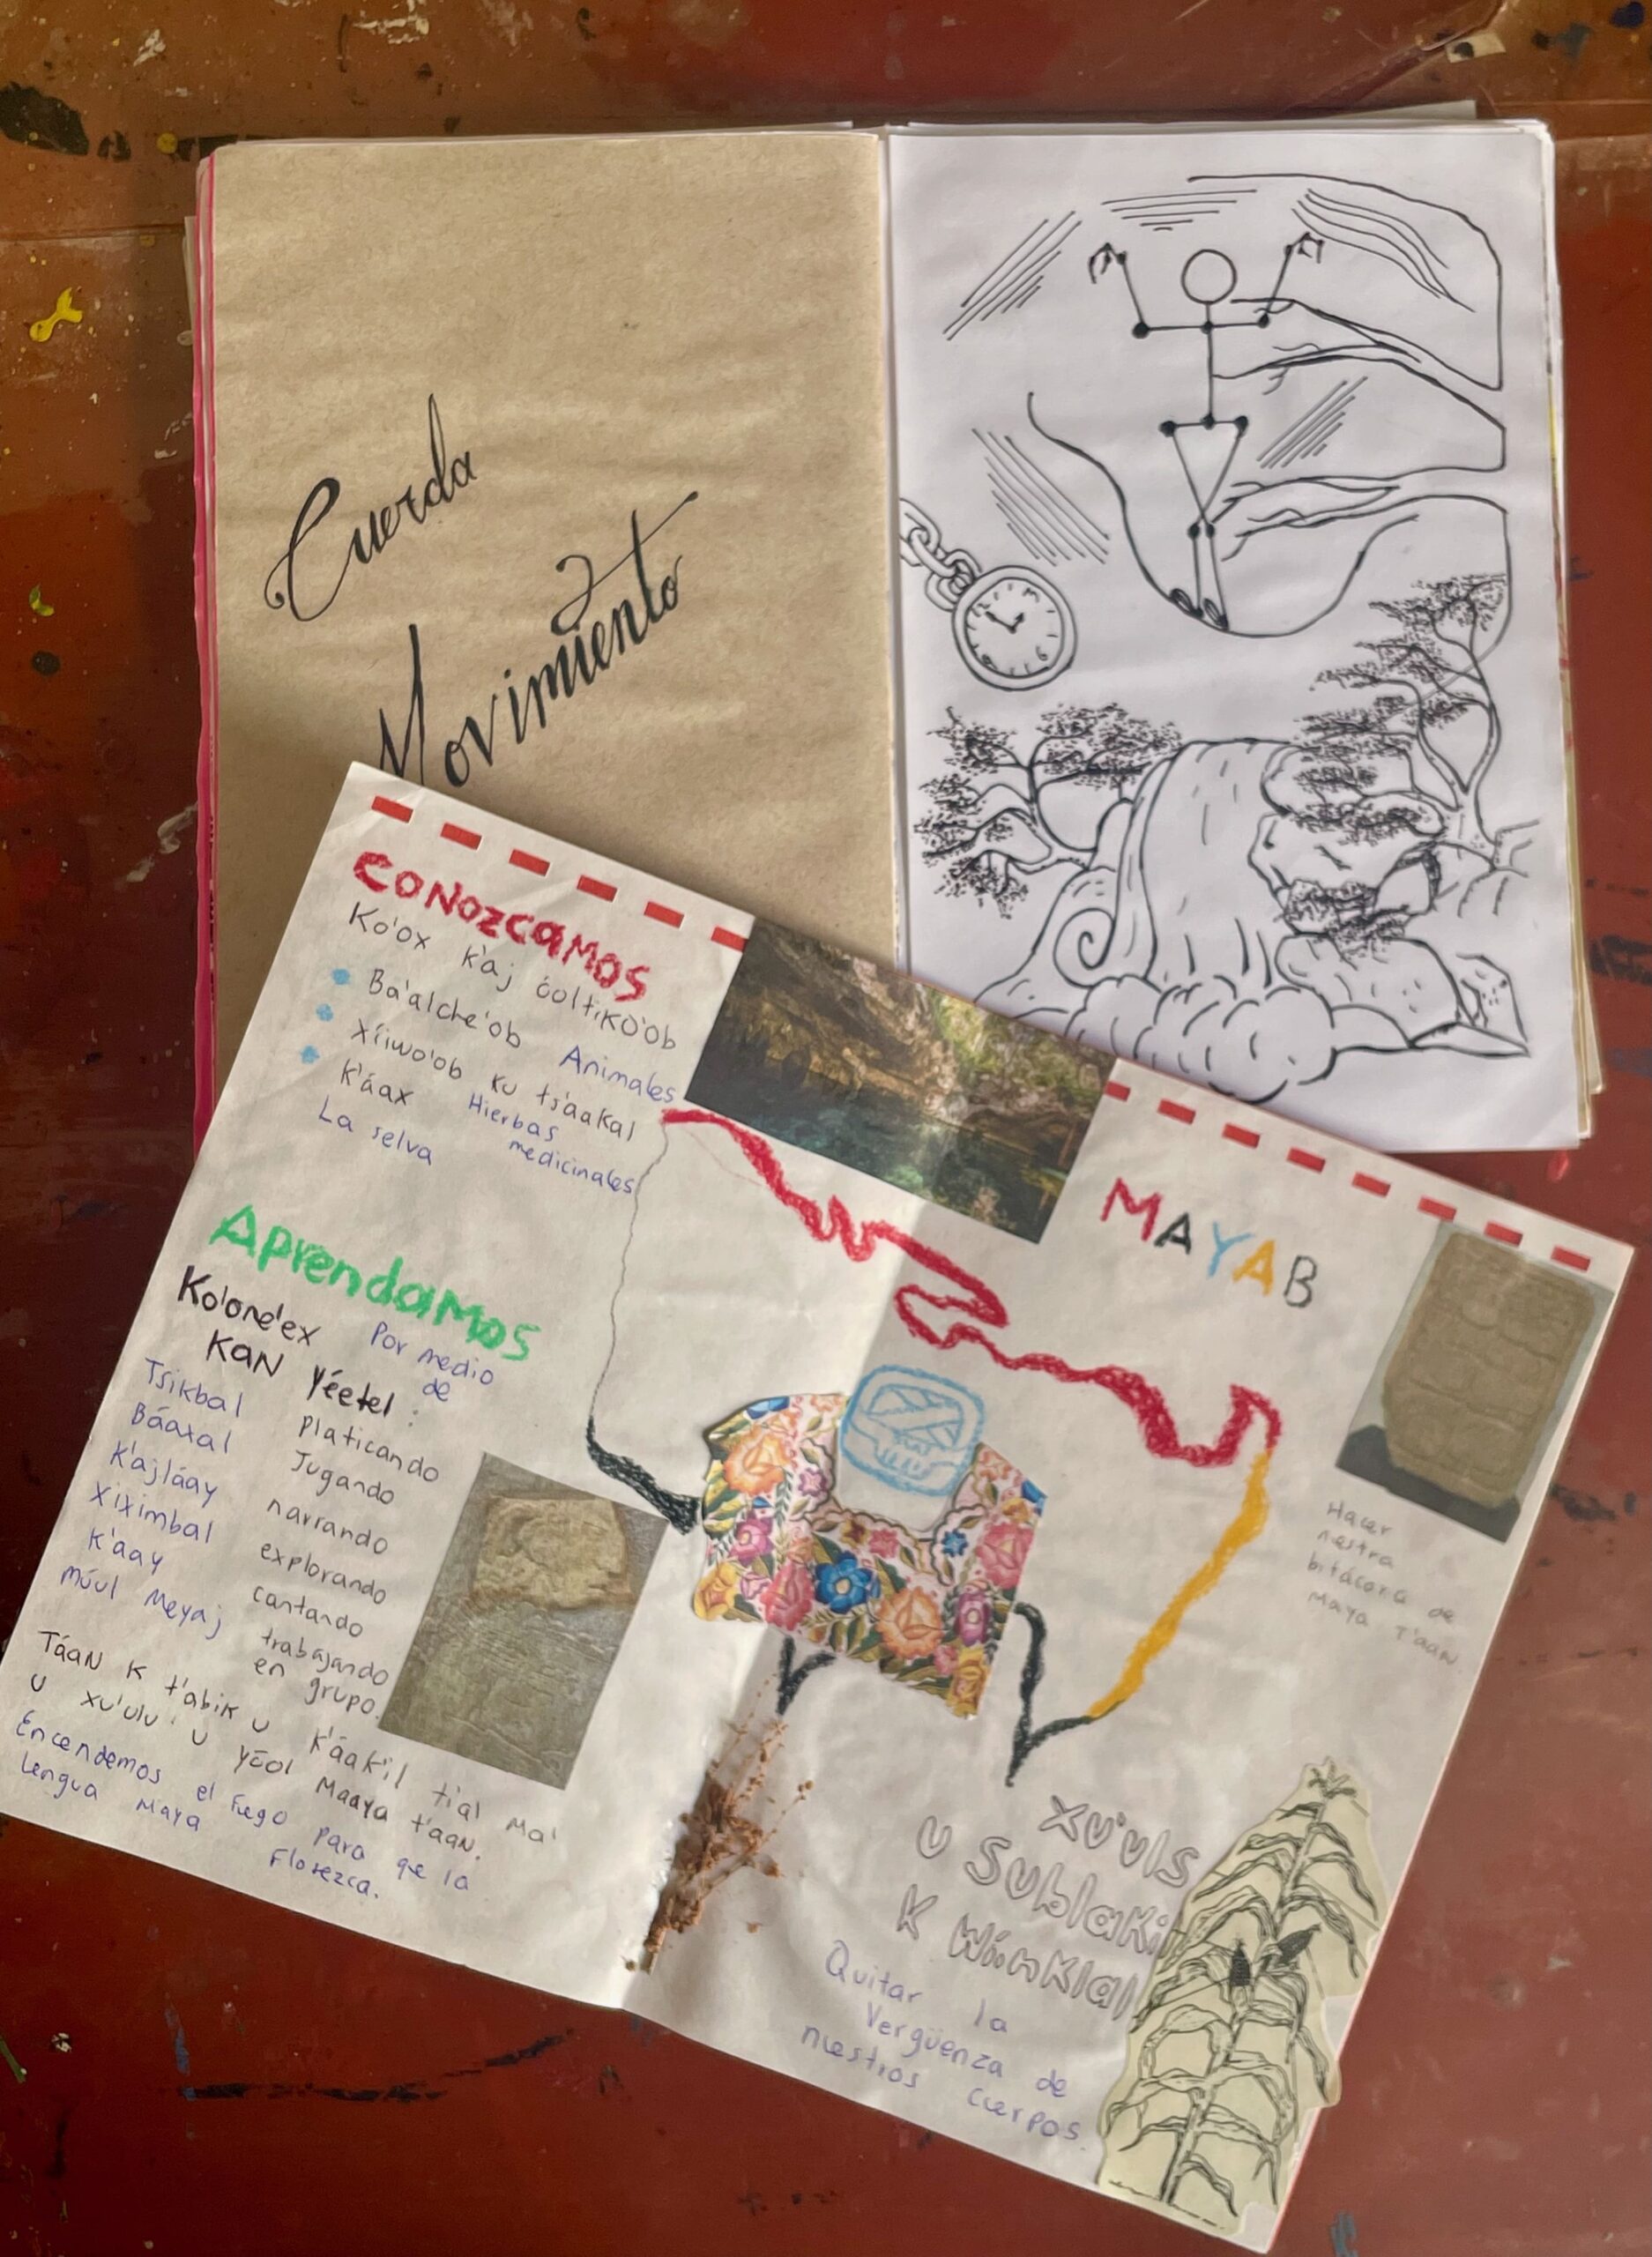 Cuerda
Movimiento
CONOZCAMOS
Ko'ox k'aj óoltiko'ob
Ba'alche'ob Animales
Xíiwo'ob ku ts'aakal
Hierbas
medicinales
K'áax
La selva
Aprendamos
Ko'one'ex Por medio
KaN yéetel : de
Tsikbal Platicando
Báaxal Jugando
K'ajláay narrando
Xiximbal explorando
K'aay cantando
Múul Meyaj trabajando
en grupo.
TáaN K t'abik u k'áak'il ti'al Ma'
u xu'ulu' u yóol Maaya t'aaN.
Encendemos el fuego para qe la
Lengua Maya Florezca.
MAYAB
Hacer
nestra
bitácora de
Maya T'aaN.
XU'Uls
U Sublakil
K Wíinklal
Quitar la
Vergüenza de
nuestros cuerpos.